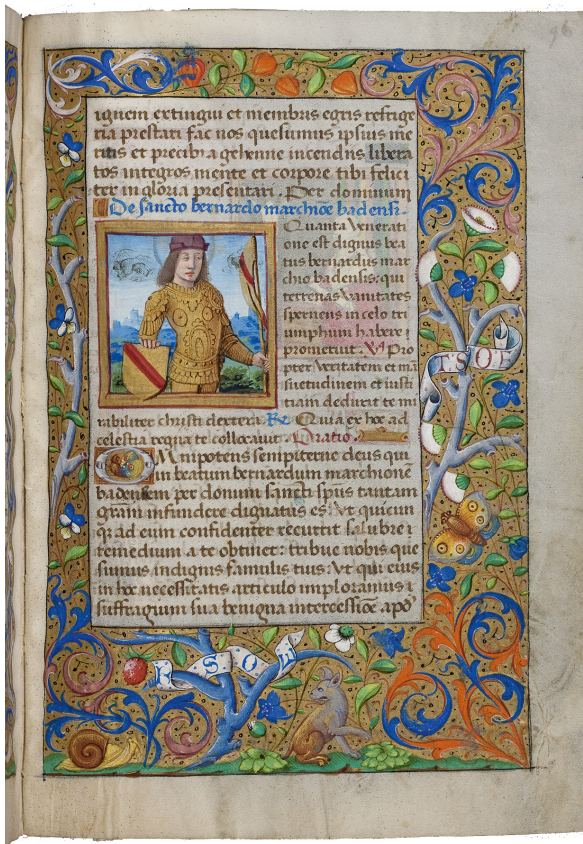 96
ignem extingui et membris egris refrige
ria prestari fac nos quesumus ipsius me
ritis et precibꝫ a gehenne incendiis libera
tos integros mente et corpore tibi felici
ter in gloria presentari. Per dominum
De sancto bernardo marchiōe badensi.
Quanta venerati
one est dignus bea
tus bernardus mar
chio badensis: qui
terrenas vanitates
spernens in celo tri
umphum habere
promeruit. V Pro
pter veritatem et mā
suetudinem et iusti
tiam deduxit te mi
rabiliter christi dextera. R Quia ex hoc ad
celestia regna te collocauit. Oratio.
Omnipotens sempiterne deus qui
in beatum bernardum marchionē
badensem per donum sancti spūs tantam
grām infundere dignatus es: Vt quicun
qꝫ ad eum confidenter recurrit salubre
remedium a te obtinet: tribue nobis que
sumus indignis famulis tuis: Vt qui eius
in hoc necessitatis articulo imploramus
suffragium sua benigna intercessiōe apō
ESOE
R SOW